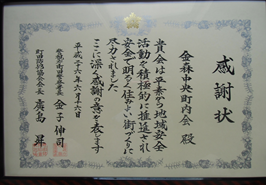 感謝状
金森中央町内会 殿
貴会は平素から地域安全
活動を積極的に推進され
安全で明るく住みよい街づくりに
尽力されました
ここに深く感謝の意を表します
平成二十六年六月十六日
警視庁町田警察署長 金子伸司
町田防犯協会会長 廣島 昇